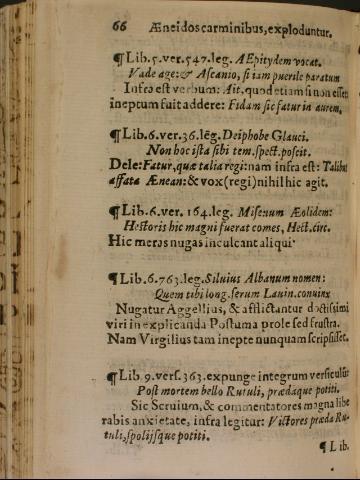 66 Æneidos carminibus, exploduntur.
¶ Lib. 5. ver. 547. leg. A Epitydem vocat.
Vade age: & Ascanio, si iam puerile paratum
Infra est verbum: Ait, quod etiam si non esset
ineptum fuit addere: Fidam sic fatur in aurem.
¶ Lib. 6. ver. 36. lēg. Deiphobe Glauci.
Non hoc ista sibi tem. spect. poscit.
Dele: Fatur, quæ talia regi: nam infra est: Talibus
affata Ænean: & vox (regi) nihil hic agit.
¶ Lib. 6. ver. 164. leg. Misenum Æolidem:
Hectoris hic magni fuerat comes, Hect. circ.
Hic meras nugas inculcant aliqui.
¶ Lib. 6. 763. leg. Siluius Albanum nomen:
Quem tibi long. serum Lauin. coniunx
Nugatur Aggellius, & afflictantur doctissimi
viri in explicanda Postuma prole sed frustra.
Nam Virgilius tam inepte nunquam scripsisset.
¶ Lib. 9. vers. 363. expunge integrum versiculum
Post mortem bello Rutuli, prædaque potiti.
Sic Seruium, & commentatores magna libe
rabis anxietate, infra legitur: Victores præda Ru-
tuli, spolijsque potiti.
¶ Lib.